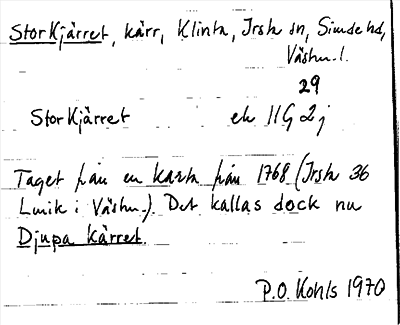 StorKjärret, kärr, Klinta, Irsta sn, Siende hd,
Västm. l.
29
StorKjärret ek 11G 2j
Taget från en karta från 1768 (Irsta 36
Lmik i Västm.). Det kallas dock nu
Djupa Kärret.
P.O. Kohls 1970